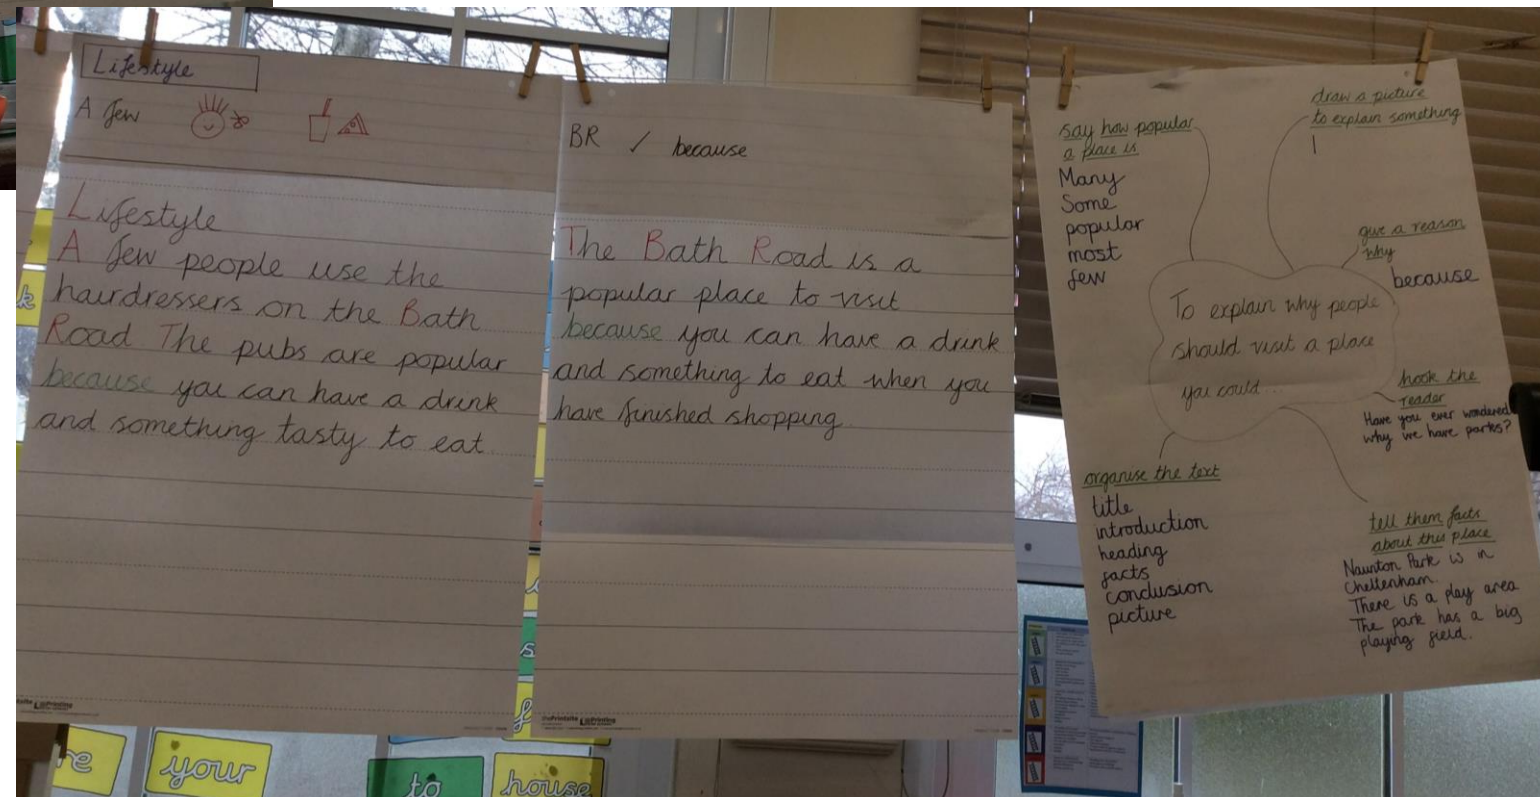 Lifestyle
A few
Lifestyle
A few people use the
hairdressers on the Bath
Road The pubs are popular
because you can have a drink
and something tasty to eat
BR / because
The Bath Road is a
popular place to visit
because you can have a drink
and something to eat when you
have finished shopping.
say how popular
a place is
Many
Some
popular
most
few
draw a picture
to explain something
give a reason
why
because
To explain why people
should visit a place
you could...
hook the
reader
Have you ever wondered
why we have parks?
organise the text
title
introduction
heading
facts
conclusion
picture
tell them facts
about this place
Naunton Park is in
Cheltenham.
There is a play area
The park has a big
playing field.
your
to
house